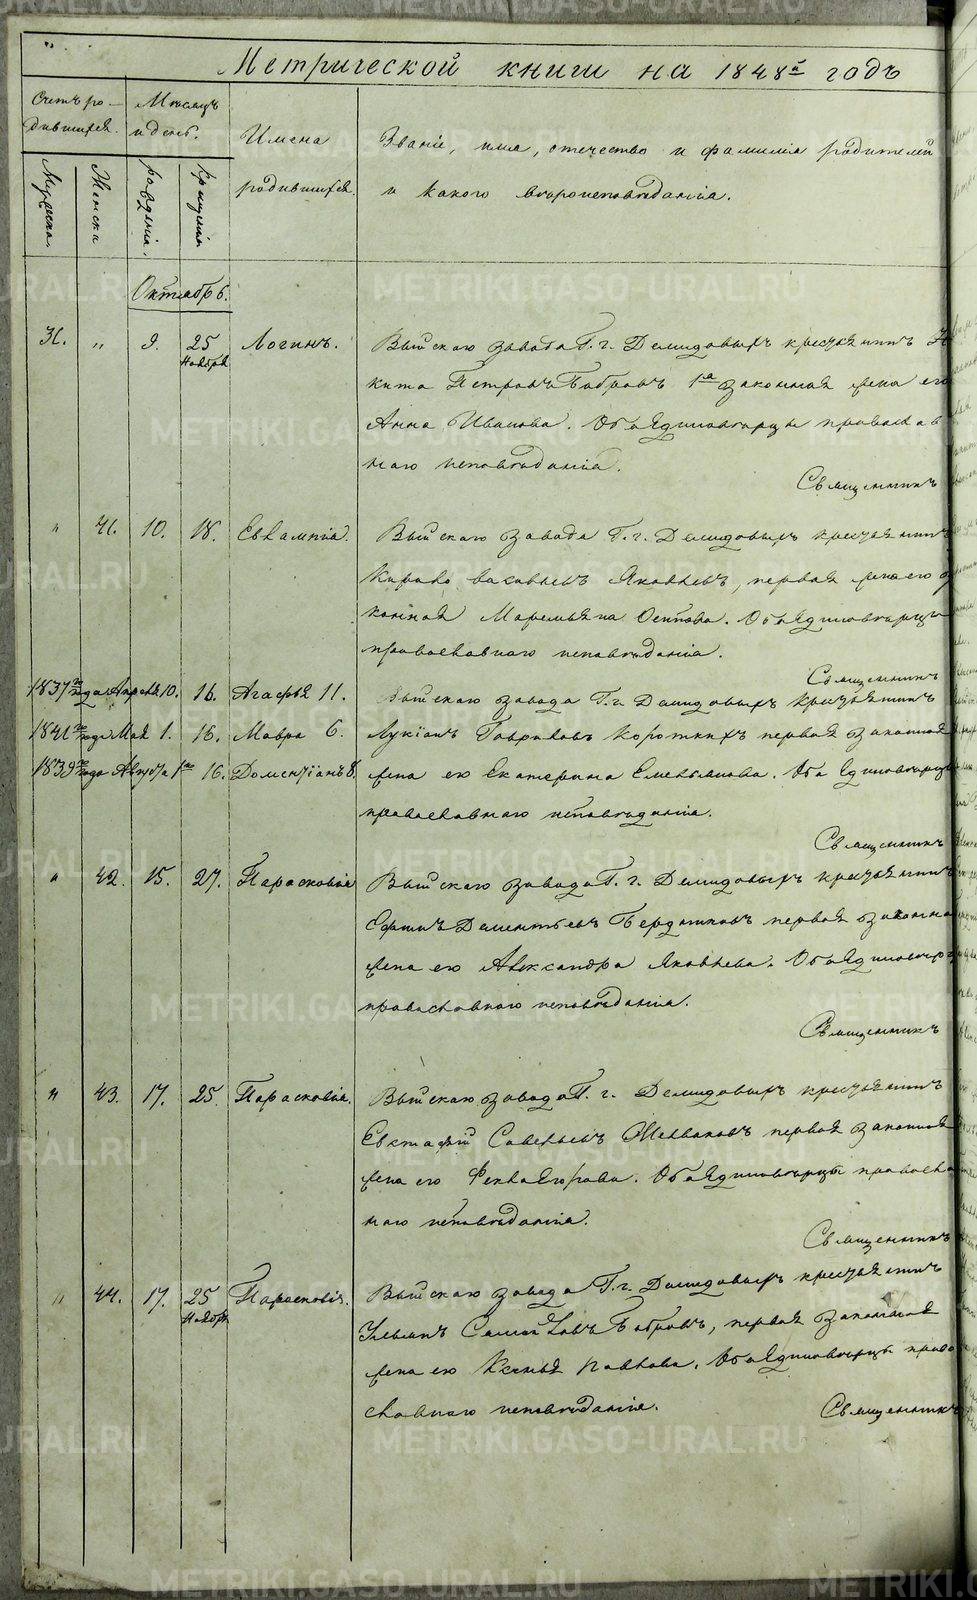 Метрической книги на 1848й годъ
Счетъ родившихся.
Мѣсяцъ и день.
Имена родившихся.
Званіе, имя, отечество и фамилія родителей
и какого вѣроисповѣданія.
Мужеска.
Женска
рожденія.
крещенія
Октябрь.
31. " 9. 25 Ноября Логинъ. Выйскаго завода Г. г. Демидовыхъ крестьянинъ Ни
кита Петровъ Бобровъ 1я законная жена его
Анна Иванова. Оба Единовѣрцы православ
наго исповѣданія.
Священникъ
" 41. 10. 18. Евлампія. Выйскаго завода Г. г. Демидовыхъ крестьянинъ
Яковлевъ, первая жена его за
конная Маремьяна Осипова. Оба Единовѣрцы
православнаго исповѣданія.
Священникъ
1837го года Апреля 10. 16. Агафья 11. Выйскаго завода Г. г. Демидовыхъ крестьянинъ
1841го года Мая 1. 16. Мавра 6. Лукіанъ Гавриловъ Короткихъ первая законная
1839го года Августа 1го 16. Доментіанъ 8. жена его Екатерина Емельянова. Оба Единовѣрцы
православнаго исповѣданія.
Священникъ
" 42. 15. 27. Парасковія Выйскаго завода Г. г. Демидовыхъ крестьянинъ
Дементьевъ Бердниковъ первая законна
жена его Александра Яковлева. Оба Единовѣр
православнаго исповѣданія.
Священникъ
" 43. 17. 25. Парасковія. Выйскаго завода Г. г. Демидовыхъ крестьянинъ
Евстафій Савельевъ Желваковъ первая законная
жена его Фекла Егорова. Оба Единовѣрцы православ
наго исповѣданія.
Священникъ
" 44. 17. 25 Ноября Парасковія. Выйскаго завода Г. г. Демидовыхъ крестьянинъ
Ульянъ Самойловъ Бобровъ, первая законная
жена его Ксенья Павлова. Оба Единовѣрцы право
славнаго исповѣданія.
Священникъ
METRIKI.GASO-URAL.RU